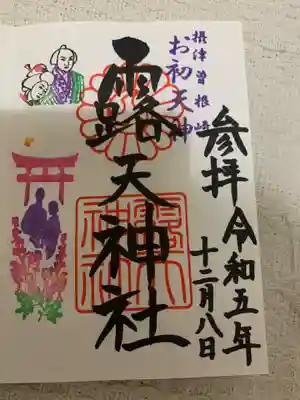 摂津曽根崎
お初天神
参拝
令和五年
十二月八日
露天神社